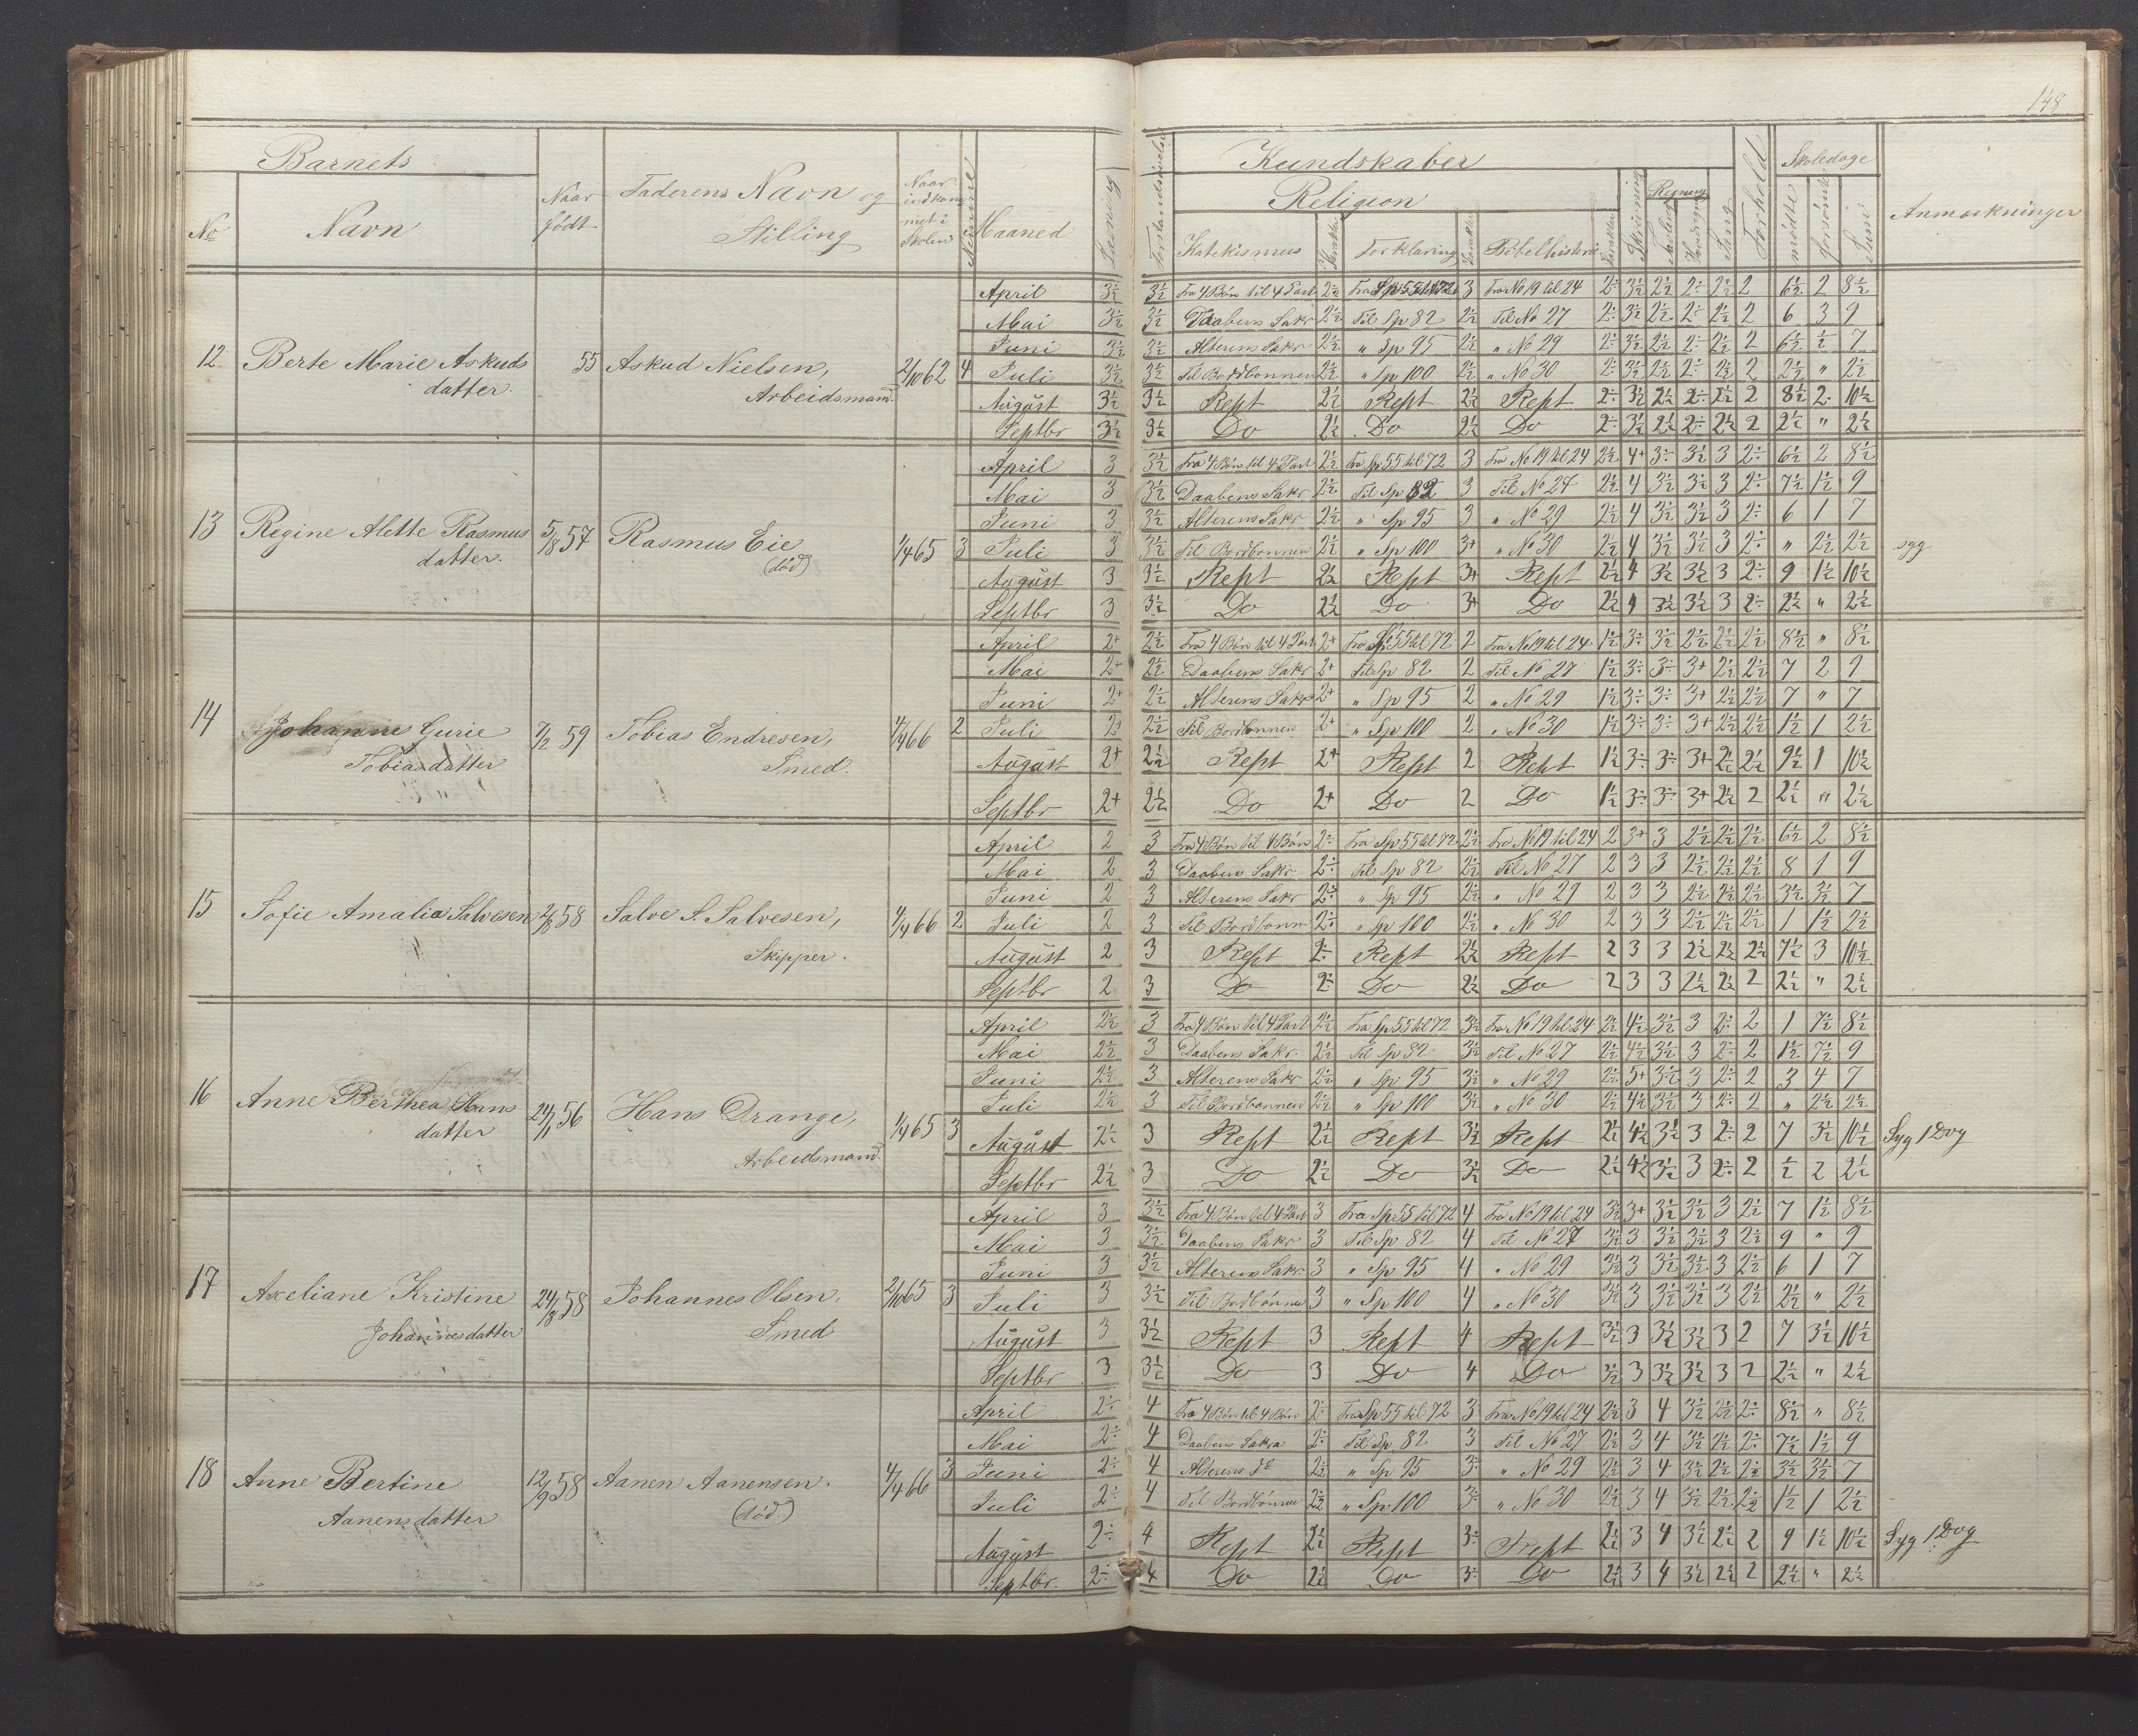 148
Barnets
No
Navn
Naar født
Faderens Navn og Stilling
Naar indkommet i Skolen
Maaned
Læsning
Kundskaber
Religion
Katekismus
Forklaring
Bibelhistorie
Skrivning
Regning
Tavleregn
Hovedregn
Sang
Forhold
Skoledage
mødte
forsømte
Sum
Anmærkninger
12 Berte Marie Askuds 55 Askud Nielsen, 2/10 62 4
datter. Arbeidsmand.
April 3½ 3½ Fra 4 Bøn til 4 Part 2½ Fra Sp 55 til 72 3 Fra No 19 til 24 2÷ 3½ 2½ 2÷ 2½ 2 6½ 2 8½
Mai 3½ 3½ Daabens Sakr 2½ Til Sp 82 2½ Til No 27 2÷ 3½ 2½ 2÷ 2½ 2 6 3 9
Juni 3½ 3½ Alterens Sakr 2½ " Sp 95 2½ " No 29 2÷ 3½ 2½ 2÷ 2½ 2 6½ ½ 7
Juli 3½ 3½ Til Bordbønnen 2½ " Sp 100 2½ " No 30 2÷ 3½ 2½ 2÷ 2½ 2 2½ " 2½
August 3½ 3½ Rept 2½ Rept 2½ Rept 2÷ 3½ 2½ 2÷ 2½ 2 8½ 2 10½
Septbr 3½ 3½ Do 2½ Do 2½ Do 2÷ 3½ 2½ 2÷ 2½ 2 2½ " 2½
13 Regine Alette Rasmus 5/8 57 Rasmus Eie 1/4 65 3
datter. (død)
April 3 3½ Fra 4 Bøn til 4 Part 2½ Fra Sp 55 til 72 3 Fra No 19 til 24 2½ 4+ 3÷ 3½ 3 2÷ 6½ 2 8½
Mai 3 3½ Daabens Sakr 2½ Til Sp 82 3 Til No 27 2½ 4 3½ 3½ 3 2÷ 7½ 1½ 9
Juni 3 3½ Alterens Sakr 2½ " Sp 95 3 " No 29 2½ 4 3½ 3½ 3 2÷ 6 1 7
Juli 3 3½ Til Bordbønnen 2½ " Sp 100 3+ " No 30 2½ 4 3½ 3½ 3 2÷ " 2½ 2½ syg
August 3 3½ Rept 2½ Rept 3+ Rept 2½ 4 3½ 3½ 3 2÷ 9 1½ 10½
Septbr 3 3½ Do 2½ Do 3+ Do 2½ 4 3½ 3½ 3 2÷ 2½ " 2½
14 Johanne Gurie 7/2 59 Tobias Endresen, 4/4 66 2
Tobiasdatter Smed.
April 2+ 2½ Fra 4 Bøn til 4 Part 2+ Fra Sp 55 til 72 2 Fra No 19 til 24 1½ 3÷ 3½ 2½ 2½ 2½ 8½ " 8½
Mai 2+ 2½ Daabens Sakr 2+ Til Sp 82 2 Til No 27 1½ 3÷ 3÷ 3+ 2½ 2½ 7 2 9
Juni 2+ 2½ Alterens Sakr 2+ " Sp 95 2 " No 29 1½ 3÷ 3÷ 3+ 2½ 2½ 7 " 7
Juli 2+ 2½ Til Bordbønnen 2+ " Sp 100 2 " No 30 1½ 3÷ 3÷ 3+ 2½ 2½ 1½ 1 2½
August 2+ 2½ Rept 2+ Rept 2 Rept 1½ 3÷ 3÷ 3+ 2½ 2½ 9½ 1 10½
Septbr 2+ 2½ Do 2+ Do 2 Do 1½ 3÷ 3÷ 3+ 2½ 2 2½ " 2½
15 Sofie Amalia Salvesen 2/8 58 Salve S. Salvesen, 4/4 66 2
Skipper.
April 2 3 Fra 4 Bøn til 4 Bøn 2÷ Fra Sp 55 til 72 2½ Fra No 19 til 24 2 3+ 3 2½ 2½ 2½ 6½ 2 8½
Mai 2 3 Daabens Sakr 2÷ Til Sp 82 2½ Til No 27 2 3 3 2½ 2½ 2½ 8 1 9
Juni 2 3 Alterens Sakr 2÷ " Sp 95 2½ " No 29 2 3 3 2½ 2½ 2½ 3½ 3½ 7
Juli 2 3 Til Bordbønn 2÷ " Sp 100 2½ " No 30 2 3 3 2½ 2½ 2½ 1 1½ 2½
August 2 3 Rept 2÷ Rept 2½ Rept 2 3 3 2½ 2½ 2½ 7½ 3 10½
Septbr 2 3 Do 2÷ Do 2½ Do 2 3 3 2½ 2½ 2 2½ " 2½
16 Anne Berthea Hans 24/11 56 Hans Drange, 1/4 65 3
datter Arbeidsmand.
April 2½ 3 Fra 4 Bøn til 4 Part 2½ Fra Sp 55 til 72 3½ Fra No 19 til 24 2½ 4½ 3½ 3 2÷ 2 1 7½ 8½
Mai 2½ 3 Daabens Sakr. 2½ Til Sp 82 3½ Til No 27 2½ 4½ 3½ 3 2÷ 2 1½ 7½ 9
Juni 2½ 3 Alterens Sakr 2½ " Sp 95 3½ " No 29 2½ 5+ 3½ 3 2÷ 2 3 4 7
Juli 2½ 3 Til Bordbønnen 2½ " Sp 100 3½ " No 30 2½ 4½ 3½ 3 2÷ 2 " 2½ 2½
August 2½ 3 Rept 2½ Rept 3½ Rept 2½ 4½ 3½ 3 2÷ 2 7 3½ 10½ Syg 1 Dag
Septbr 2½ 3 Do 2½ Do 3½ Do 2½ 4½ 3½ 3 2÷ 2 ½ 2 2½
17 Axeliane Kristine 24/8 58 Johannes Olsen, 2/10 65 3
Johannesdatter Smed
April 3 3½ Fra 4 Bøn til 4 Part 3 Fra Sp 55 til 72 4 Fra No 19 til 24 3½ 3+ 3½ 3½ 3 2½ 7 1½ 8½
Mai 3 3½ Daabens Sakr 3 Til Sp 82 4 Til No 27 3½ 3 3½ 3½ 3 2½ 9 " 9
Juni 3 3½ Alterens Sakr. 3 " Sp 95 4 " No 29 3½ 3 3½ 3½ 3 2½ 6 1 7
Juli 3 3½ Til Bordbønnen 3 " Sp 100 4 " No 30 3½ 3 3½ 3½ 3 2½ 2½ " 2½
August 3 3½ Rept 3 Rept 4 Rept 3½ 3 3½ 3½ 3 2 7 3½ 10½
Septbr 3 3½ Do 3 Do 4 Do 3½ 3 3½ 3½ 3 2 2½ " 2½
18 Anne Bertine 12/9 58 Aanen Aanensen. 4/4 66 3
Aanensdatter (død.)
April 2÷ 4 Fra 4 Bøn til 4 Bøn 2÷ Fra Sp 55 til 72 3 Fra No 19 til 24 2½ 3 4 3½ 2½ 2÷ 8½ " 8½
Mai 2÷ 4 Daabens Sakra 2÷ Til Sp 82 3 Til No 27 2½ 3 4 3½ 2½ 2÷ 7½ 1½ 9
Juni 2÷ 4 Alterens do 2½ " Sp 95 3÷ " No 29 2½ 3 4 3½ 2½ 2½ 3½ 3½ 7
Juli 2÷ 4 Til Bordbønnen 2½ " Sp 100 3÷ " No 30 2½ 3 4 3½ 2½ 2½ 1½ 1 2½
August 2÷ 4 Rept 2½ Rept 3÷ Rept 2½ 3 4 3½ 2½ 2 9 1½ 10½ Syg 1 Dag
Septbr. 2÷ 4 Do 2½ Do 3÷ Do 2½ 3 4 3½ 2½ 2 2½ " 2½